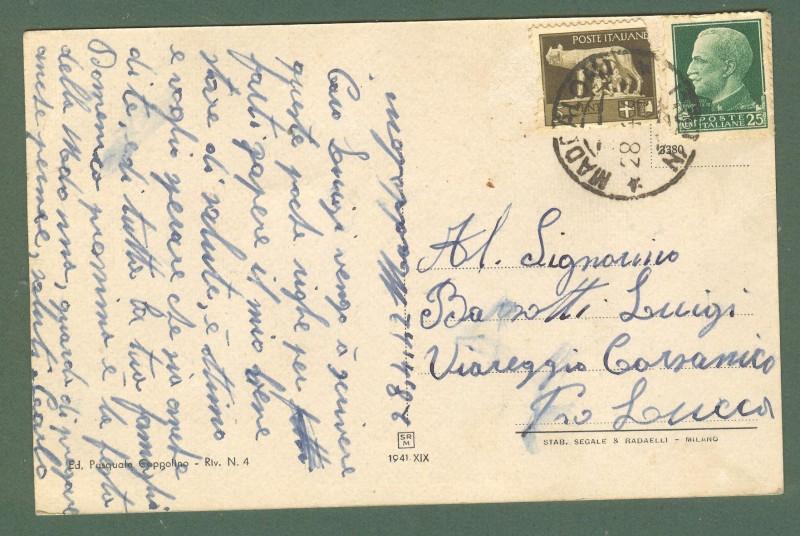 Caro Luigi vengo à scrivere
queste poche righe per
farti sapere il mio bene
stare di salute, è ottimo
e voglio sperare che sia anche
di te, e di tutta la tua famiglia
Domenica prossima è la festa
della Madonna, guarda di
anche saluti Carlo
POSTE ITALIANE
POSTE ITALIANE 25
CENT
3380
28
Al. Signorino
Barsotti Luigi
Viareggio Corsanico
Pro Lucca
STAB. SEGALE & RADAELLI - MILANO
SRM
1941 XIX
Ed. Pasquale Coppolino - Riv. N. 4